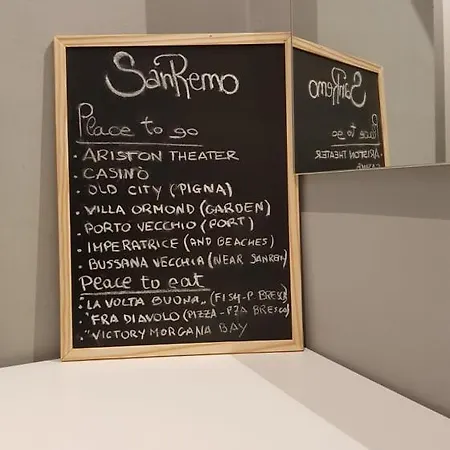 SanRemo
Place to go
• ARISTON THEATER
• CASINÒ
• OLD CITY (PIGNA)
• VILLA ORMOND (GARDEN)
• PORTO VECCHIO (PORT)
• IMPERATRICE (AND BEACHES)
• BUSSANA VECCHIA (NEAR SANREMO)
Place to eat
• "LA VOLTA BUONA" (FISH-P. BRESCA)
• "FRA DIAVOLO (PIZZA - PZA BRESCA)
• "VICTORY MORGANA BAY
SanRemo
Place to go
• ARISTON THEATER